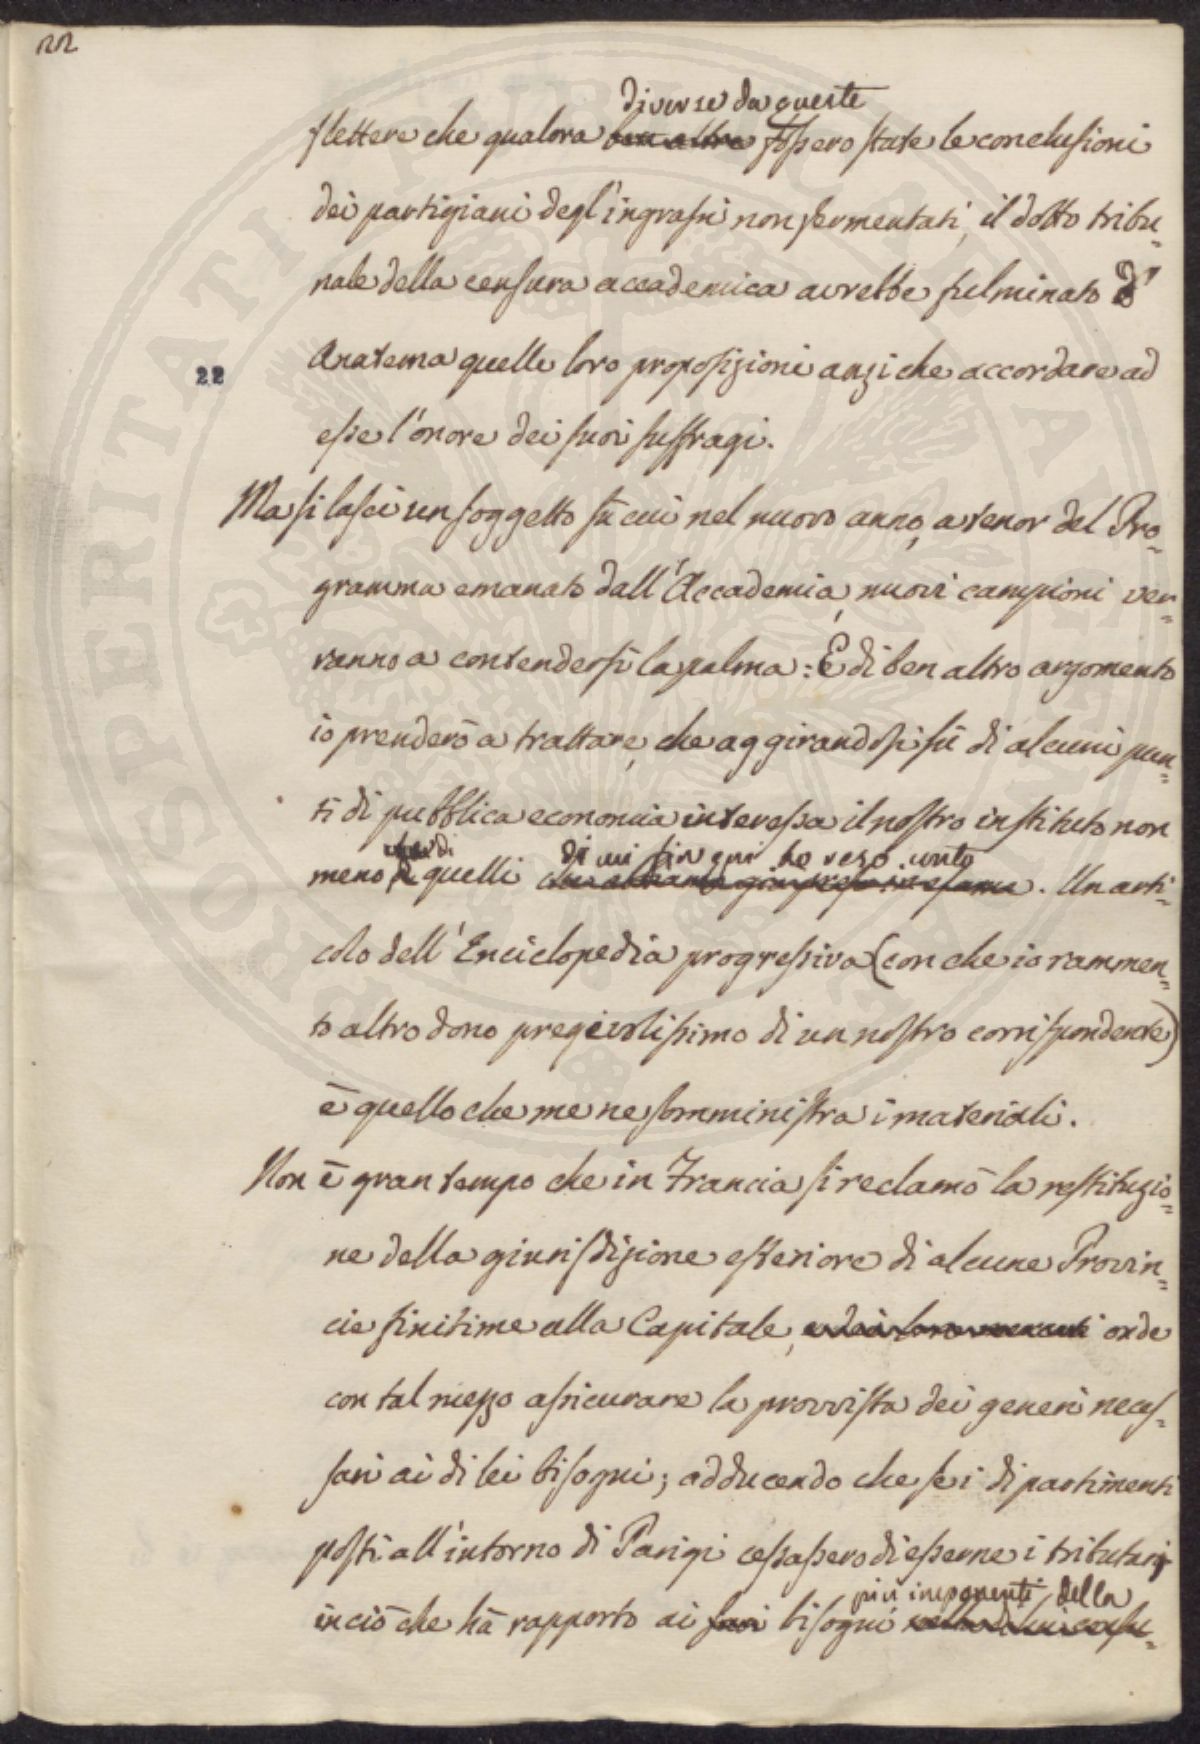 22
diverse da queste
flettere che qualora ben altre fossero state le conclusioni
dei partigiani degl'ingrassi non fermentati, il dotto tribu=
nale della censura accademica avrebbe fulminato d'
22
Anatema quelle loro proposizioni anzi che accordare ad
esse l'onore dei suoi suffragi.
Ma si lasci un soggetto sù cui nel nuovo anno, a tenor del Pro=
gramma emanato dall'Accademia, nuovi campioni ver=
ranno a contendersi la palma: E di ben altro argomento
io prenderò a trattare, che aggirandosi sù di alcuni pun=
ti di pubblica economia interessa il nostro instituto non
di di cui fin qui ho reso conto
meno quelli che abbiamo già preso in esame. Un arti=
colo dell'Enciclopedia progressiva (con che io rammen=
to altro dono pregievolissimo di un nostro corrispondente)
è quello che me ne somministra i materiali.
Non è gran tempo che in Francia si reclamò la restituzio=
ne della giurisdizione esteriore di alcune Provin=
cie finitime alla Capitale, onde
con tal mezzo assicurare la provvista dei generi neces=
sari ai di lei bisogni; adducendo che se i dipartimenti
posti all'intorno di Parigi cessassero di esserne i tributari
più imponenti della
in ciò che hà rapporto ai suoi bisogni